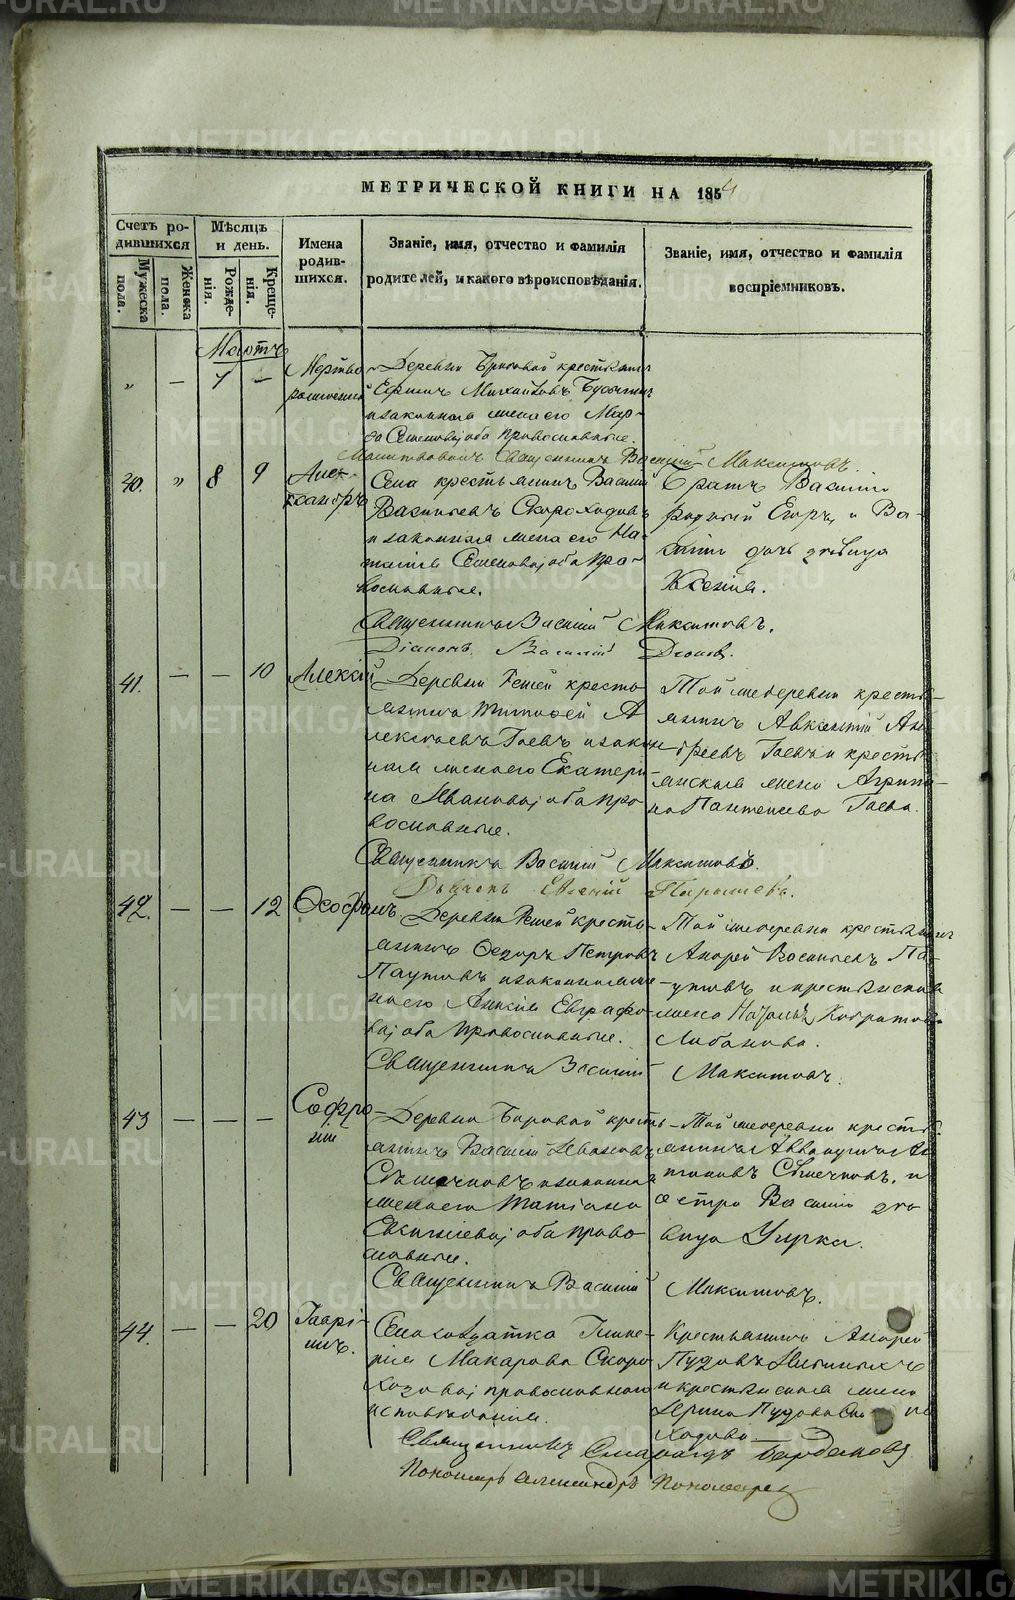 МЕТРИЧЕСКОЙ КНИГИ НА 1854
Счетъ ро-
дившихся
Мужеска пола.
Женска пола.
Мѣсяцъ
и день.
Рожде-
нія.
Креще-
нія.
Имена
родив-
шихся.
Званіе, имя, отчество и фамилія
родителей, и какого вѣроисповѣданія.
Званіе, имя, отчество и фамилія
воспріемниковъ.
Мартъ
" — 7 — Мертво
рожденный
Деревни крестьянинъ
Ефимъ Михайловъ
и законная жена его Мар-
фа Семенова, оба православные.
Молитвовалъ Священникъ Василій Максимовъ.
40. " 8 9 Алек-
сандръ
Села крестьянинъ Василій
Васильевъ Скороходовъ
и законная жена его На-
талія Семенова, оба пра-
вославные.
Братъ Василію
родный Егоръ и Ва-
силія дочь дѣвица
Ксенія.
Священникъ Василій Максимовъ.
Діаконъ Василій
41. — — 10 Алексій
Деревни Решей кресть-
янинъ Тимофей А-
лексѣевъ Гаевъ и закон-
ная жена его Екатери-
на Иванова, оба пра-
вославные.
Той же деревни кресть-
янинъ Авксентій Ан-
дреевъ Гаевъ и кресть-
янская жена Агрипи-
на Пантелеева Гаева.
Священникъ Василій Максимовъ.
Дьячокъ Евгеній
42. — — 12 Ѳеофанъ
Деревни Решей кресть-
янинъ Ѳедоръ Петровъ
Паутовъ и законная же-
на его Анисія Евграфо-
ва, оба православные.
Той же деревни крестьянинъ
Андрей Васильевъ Па-
утовъ и крестьянская
жена Наталья
Лобанова.
Священникъ Василій Максимовъ.
43 — — — Софро-
ній
Деревни Боровой кресть-
янинъ Василій Ивановъ
и законная
жена его Татіана
Евсигніева, оба право-
славные.
Той же деревни кресть-
янинъ Аввакумъ Ан-
тоновъ и
сестра Василію дѣ-
вица Улита.
Священникъ Василій Максимовъ.
44. — — 20 Гаврі-
илъ.
Села солдатка Глике-
рія Макарова Скоро-
ходова, православнаго
исповѣданія.
Крестьянинъ Андрей
Пудовъ
и крестьянская жена
Ирина Пудова Ско
ходова
Священникъ Смарагдъ
Пономарь Александръ Пономарев
METRIKI.GASO-URAL.RU